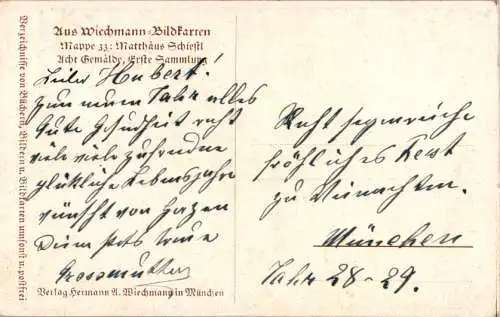 Aus Wiechmann-Bildkarten
Mappe 33: Matthäus Schiestl
Acht Gemälde, Erste Sammlung
Lieber Hubert!
zum neuen Jahr alles
Gute Gesundheit recht
viele viele zufriedne
glükliche Lebensjahre
wünscht von Herzen
Deine stets treue
Grossmutter
Verlag Hermann A. Wiechmann in München
Verzeichnisse von Büchern, Bildern u. Bildkarten umsonst u. postfrei
Recht segensreiche
fröhliches Fest
zu Weinachten.
München
Jahr 28-29.